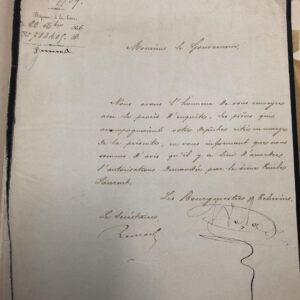 Réponse à la lettre
du 22
Monsieur le Gouverneur,
Nous avons l'honneur de vous renvoyer
avec le procès d'enquête, les pièces qui
accompagnaient votre dépêche citée en marge
de la présente, en vous informant que nous
sommes d'avis qu'il y a lieu d'accorder
l'autorisation demandée par le sieur
Laurent.
Les Bourgmestre & Echevins,
Le Secrétaire,